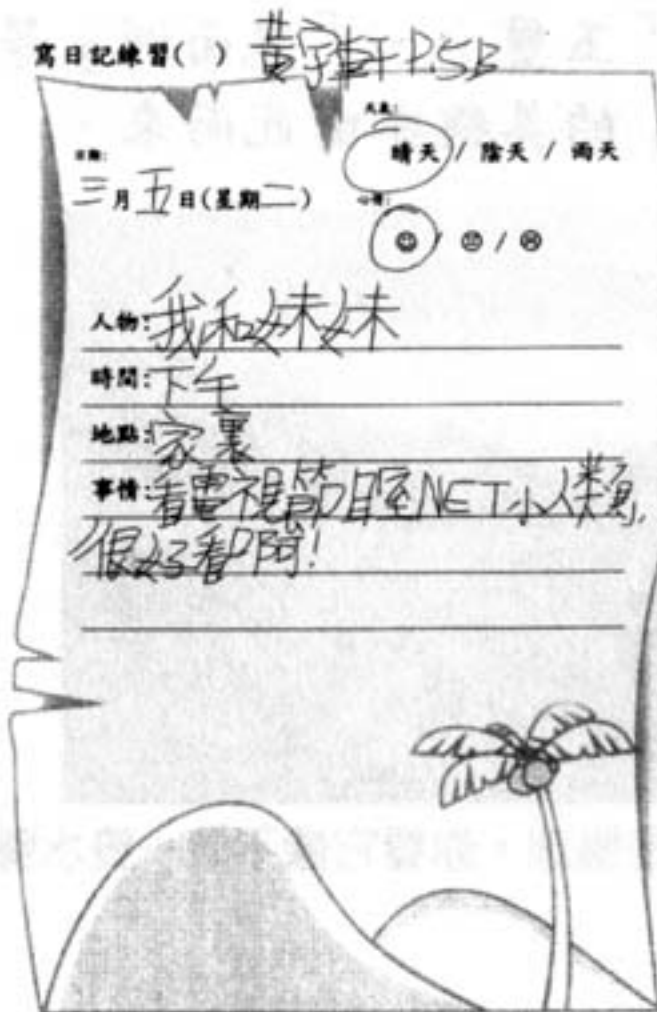 寫日記練習( ) 黃宇軒 P.5B
天氣:
晴天 / 陰天 / 雨天
日期:
三月五日(星期二)
心情:
☺ / 😐 / ☹
人物:我和妹妹
時間:下午
地點:家裏
事情:看電視節目至NET小人類,
很好看啊!